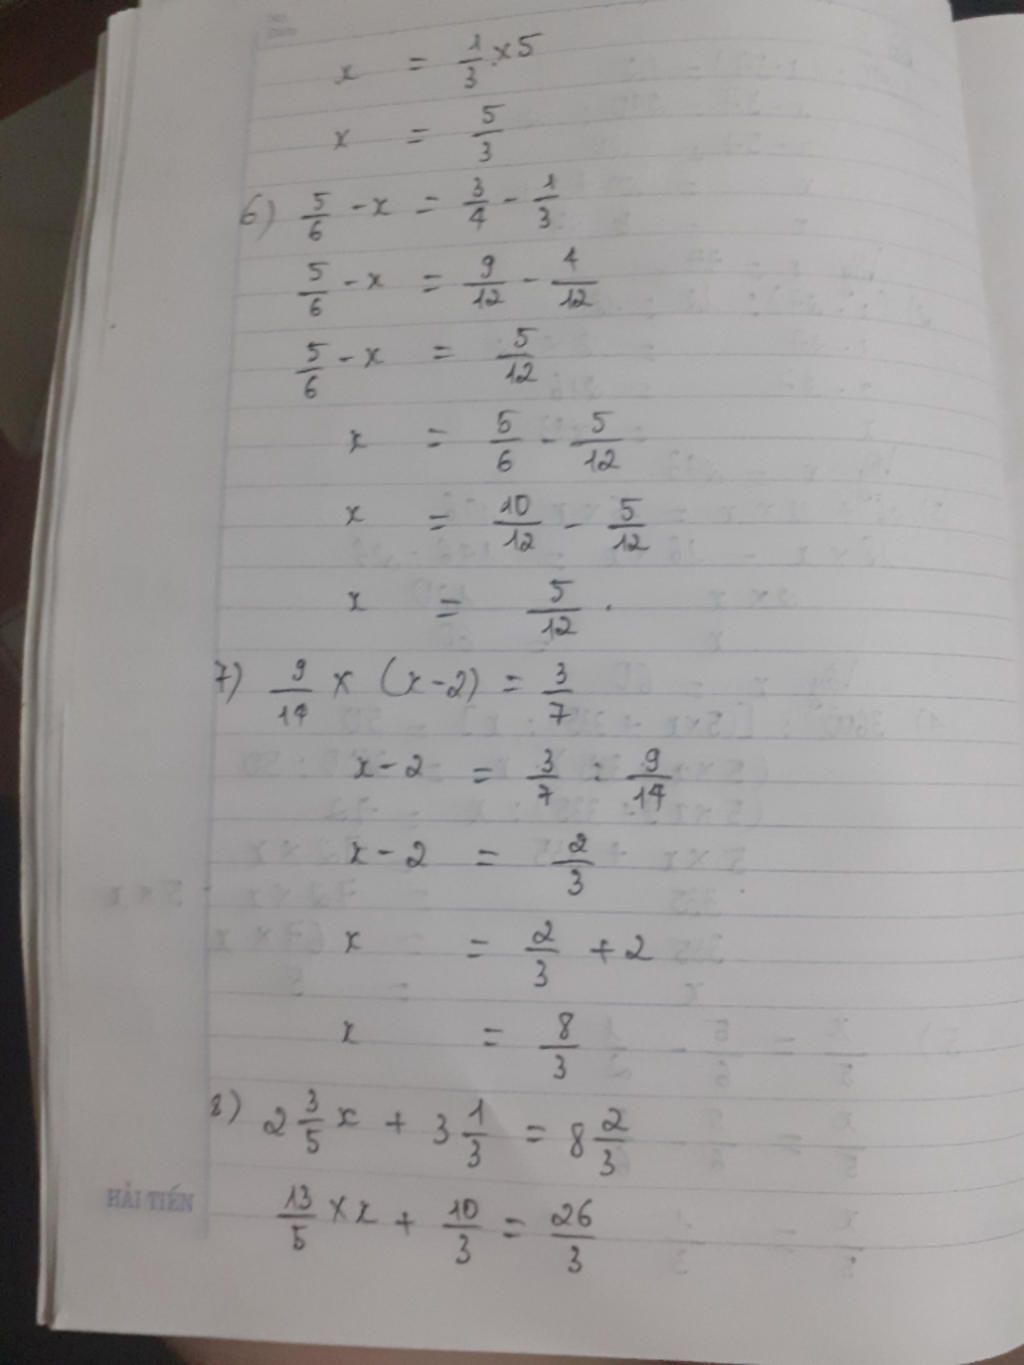 x = 1/3 × 5
x = 5/3
6) 5/6 - x = 3/4 - 1/3
5/6 - x = 9/12 - 4/12
5/6 - x = 5/12
x = 5/6 - 5/12
x = 10/12 - 5/12
x = 5/12.
7) 9/14 × (x - 2) = 3/7
x - 2 = 3/7 : 9/14
x - 2 = 2/3
x = 2/3 + 2
x = 8/3
8) 2 3/5 x + 3 1/3 = 8 2/3
13/5 × x + 10/3 = 26/3
HẢI TIẾN